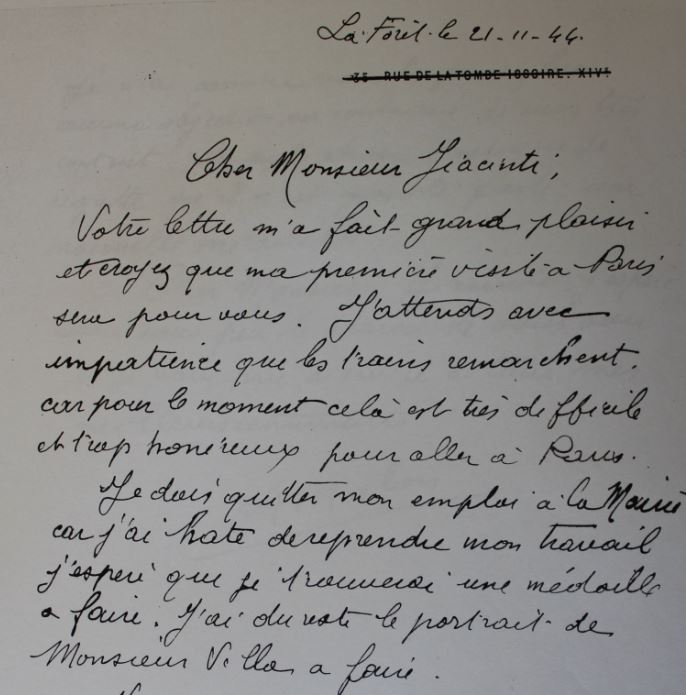 La Forêt le 21-11-44.
35 RUE DE LA TOMBE ISSOIRE. XIVe
Cher Monsieur Jiacinti,
Votre lettre m'a fait grand plaisir
et croyez que ma première visite à Paris
sera pour vous. J'attends avec
impatience que les trains remarchent,
car pour le moment celà est très difficile
et trop honéreux pour aller à Paris.
Je dois quitter mon emploi à la Mairie
car j'ai hate de reprendre mon travail
j'espere que je trouverai une médaille
a faire. J'ai du reste le portrait de
Monsieur Villa a faire.